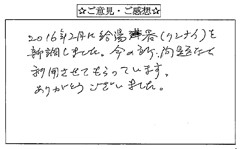 ☆ご意見・ご感想☆
2016年2月に給湯器(リンナイ)を
新調しました。今の所、問題なく
利用させてもらっています。
ありがとうございました。